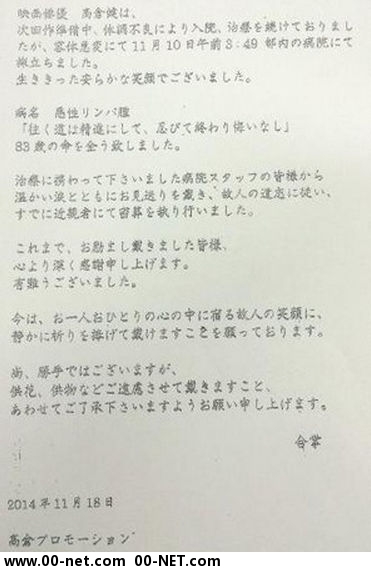 映画俳優　高倉健は、
次回作準備中、体調不良により入院、治療を続けておりまし
たが、容体急変にて11月10日午前3:49 都内の病院にて
旅立ちました。
生ききった安らかな笑顔でございました。
病名　悪性リンパ腫
「往く道は精進にして、忍びて終わり悔いなし」
83歳の命を全う致しました。
治療に携わって下さいました病院スタッフの皆様から
温かい涙とともにお見送りを戴き、故人の遺志に従い、
すでに近親者にて密葬を執り行いました。
これまで、お励まし戴きました皆様、
心より深く感謝申し上げます。
有難うございました。
今は、お一人おひとりの心の中に宿る故人の笑顔に、
静かに祈りを捧げて戴けますことを願っております。
尚、勝手ではございますが、
供花、供物などご遠慮させて戴きますこと、
あわせてご了承下さいますようお願い申し上げます。
合掌
2014年11月18日
高倉プロモーション
www.00-net.com 00-NET.com